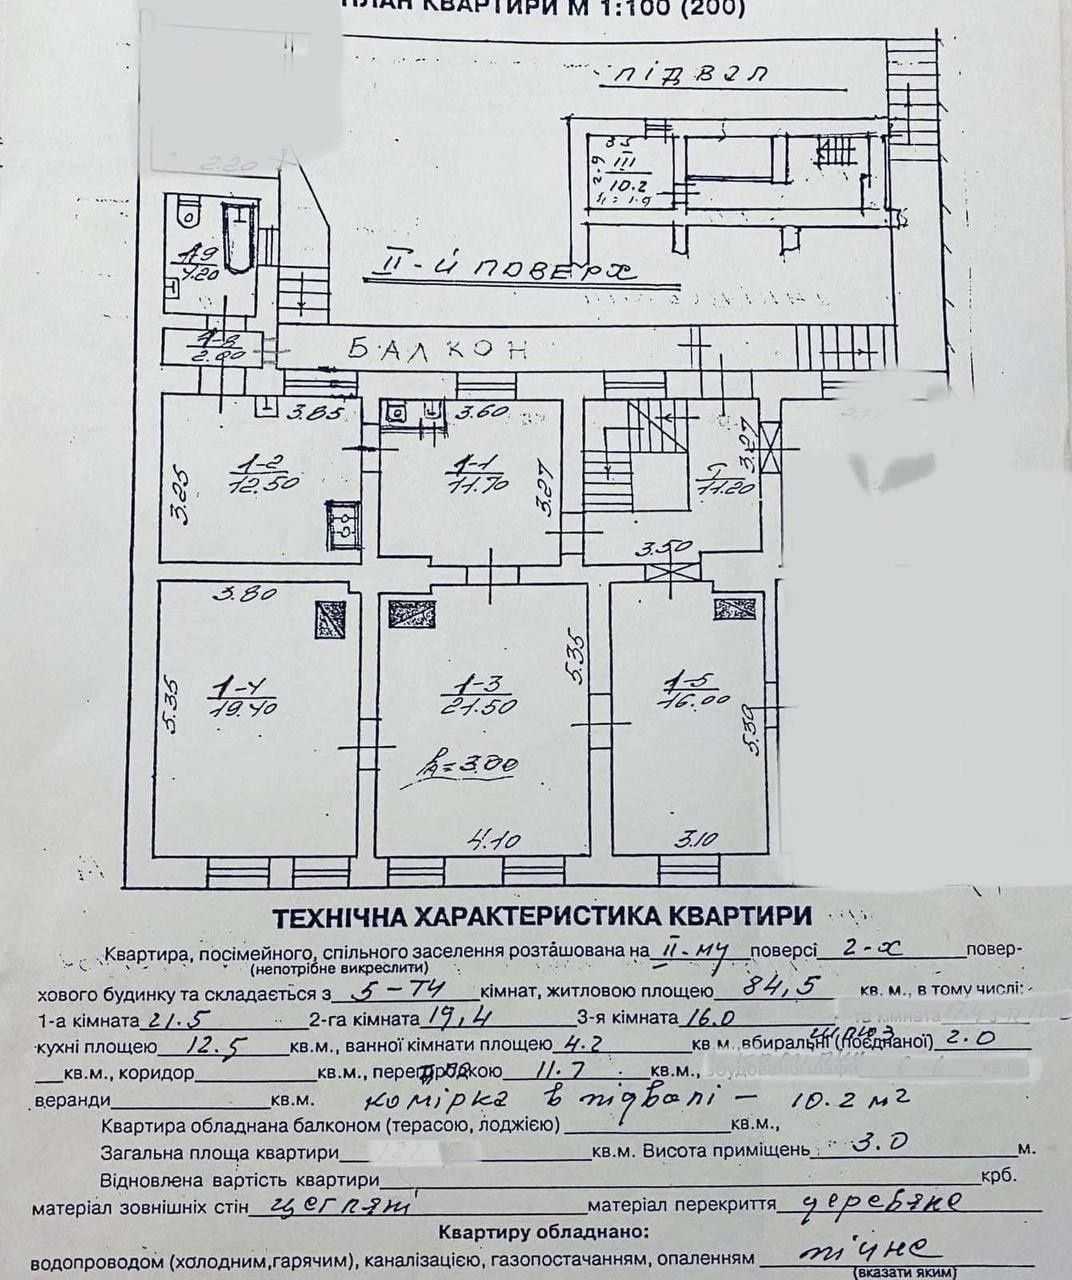 ПЛАН КВАРТИРИ М 1:100 (200)
ПІДВАЛ
2.20
3.5
2.9
III
10.2
h=1.9
1-9
4.20
II-й ПОВЕРХ
1-8
2.00
БАЛКОН
3.85
3.60
3.25
1-2
12.50
1-1
11.70
3.27
3.27
I
11.20
3.50
3.80
5.35
1-4
19.40
1-3
21.50
5.35
h=3.00
4.10
1-5
16.00
5.30
3.10
ТЕХНІЧНА ХАРАКТЕРИСТИКА КВАРТИРИ
Квартира, посімейного, спільного заселення розташована на II-му поверсі 2-х повер-
(непотрібне викреслити)
хового будинку та складається з 5-ти кімнат, житловою площею 84,5 кв. м., в тому числі:
1-а кімната 21.5 2-га кімната 19,4 3-я кімната 16.0
кухні площею 12.5 кв.м., ванної кімнати площею 4.2 кв.м., вбиральні (поєднаної) шлюз 2.0
кв.м., коридор кв.м., 11.7 кв.м.,
веранди кв.м. комірка в підвалі – 10.2 м2
Квартира обладнана балконом (терасою, лоджією) кв.м.,
Загальна площа квартири кв.м. Висота приміщень 3.0 м.
Відновлена вартість квартири крб.
матеріал зовнішніх стін цегляні матеріал перекриття деревяне
Квартиру обладнано:
водопроводом (холодним,гарячим), каналізацією, газопостачанням, опаленням пічне
(вказати яким)